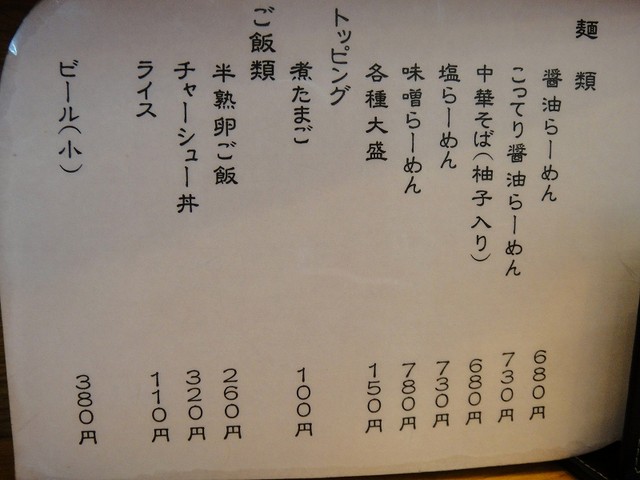 麺類
醤油らーめん 680円
こってり醤油らーめん 730円
中華そば(柚子入り) 680円
塩らーめん 730円
味噌らーめん 780円
各種大盛 150円
トッピング
煮たまご 100円
ご飯類
半熟卵ご飯 260円
チャーシュー丼 320円
ライス 110円
ビール(小) 380円